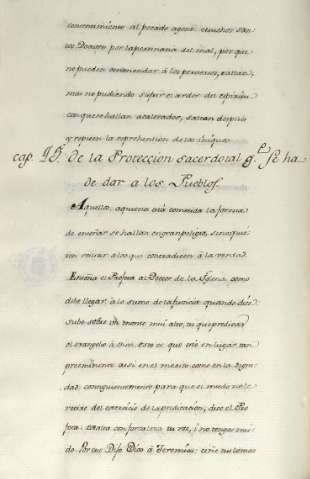 consentimiento al pecado ageno. muchos San-
tos Doctores por la permanencia del mal, porque
no pueden enmendar á los perversos, callan,
mas no pudiendo sufrir el ardor del espiritu
con que se hallan acalorados, sacan despues
y repiten la reprehension de las
cap. 15. De la Proteccion sacerdotal q.e se ha
de dar a los Pueblos.
Aquellos, aquienes está cometida la forma
de enseñar se hallan en gran peligro, si no quie-
ren retirar a los que contradicen á la verdad.
Enseña el Profeta al Doctor de la Iglesia, como
debe llegar á lo sumo de la justicia quando dice:
sube sobre un monte mui alto, tu que predicas
el evangelio á Sion. Esto es que esté en lugar tan
preeminente assi en el merito como en la digni-
dad. consiguientemente para que el miedo no le
retrae del exercicio de la predicacion, dice el Pro-
feta: exalta con fortaleza tu voz, i no tengas mie-
do. Por eso Dijo Dios á Jeremias: ciñe tus lomos